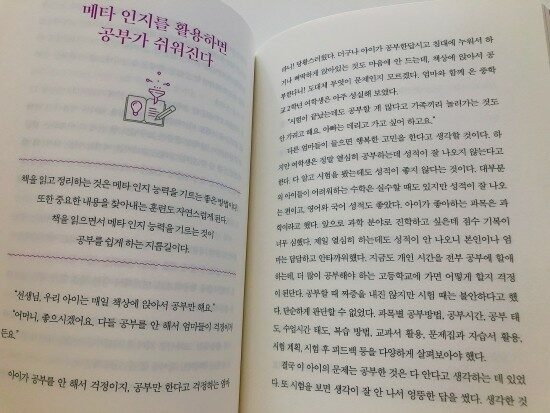 메타 인지를 활용하면
공부가 쉬워진다
책을 읽고 정리하는 것은 메타 인지 능력을 기르는 좋은 방법이다.
또한 중요한 내용을 찾아내는 훈련도 자연스럽게 된다.
책을 읽으면서 메타 인지 능력을 기르는 것이
공부를 쉽게 하는 지름길이다.
"선생님, 우리 아이는 매일 책상에 앉아서 공부만 해요."
"어머니, 좋으시겠어요. 다들 공부를 안 해서 엄마들이 걱정이거
든요."
아이가 공부를 안 해서 걱정이지, 공부만 한다고 걱정하는 엄마
라니! 당황스러웠다. 더구나 아이가 공부한답시고 침대에 누워서 하
거나 삐딱하게 앉아있는 것도 마음에 안 드는데, 책상에 앉아서 공
부한다니! 도대체 무엇이 문제인지 모르겠다. 엄마와 함께 온 중학
교 2학년 여학생은 아주 성실해 보였다.
"시험이 끝났는데도 공부할 게 많다고 가족끼리 놀러가는 것도
안 가려고 해요. 아빠는 데리고 가고 싶어 하고요."
다른 엄마들이 들으면 행복한 고민을 한다고 생각할 것이다. 하
지만 여학생은 정말 열심히 공부하는데 성적이 잘 나오지 않는다고
한다. 다 알고 시험을 봤는데도 성적이 좋지 않다는 것이다. 대부분
의 아이들이 어려워하는 수학은 실수할 때도 있지만 성적이 잘 나오
는 편이고, 영어와 국어 성적도 좋았다. 아이가 좋아하는 과목은 과
학이라고 했다. 앞으로 과학 분야로 진학하고 싶은데 점수 기복이
너무 심했다. 제일 열심히 하는데도 성적이 안 나오니 본인이나 엄
마는 답답하고 안타까워했다. 지금도 개인 시간을 전부 공부에 할애
하는데, 더 많이 공부해야 하는 고등학교에 가면 어떻게 할지 걱정
이 된단다. 공부할 때 짜증을 내진 않지만 시험 때는 불안하다고 했
다. 단순하게 판단할 수 없었다. 과목별 공부방법, 공부시간, 공부 태
도, 수업시간 태도, 복습 방법, 교과서 활용, 문제집과 자습서 활용,
시험 계획, 시험 후 피드백 등을 다양하게 살펴보아야 했다.
결국 이 아이의 문제는 공부한 것은 다 안다고 생각하는 데 있었
다. 또 시험을 보면 생각이 잘 안 나서 엉뚱한 답을 썼다. 생각한 것